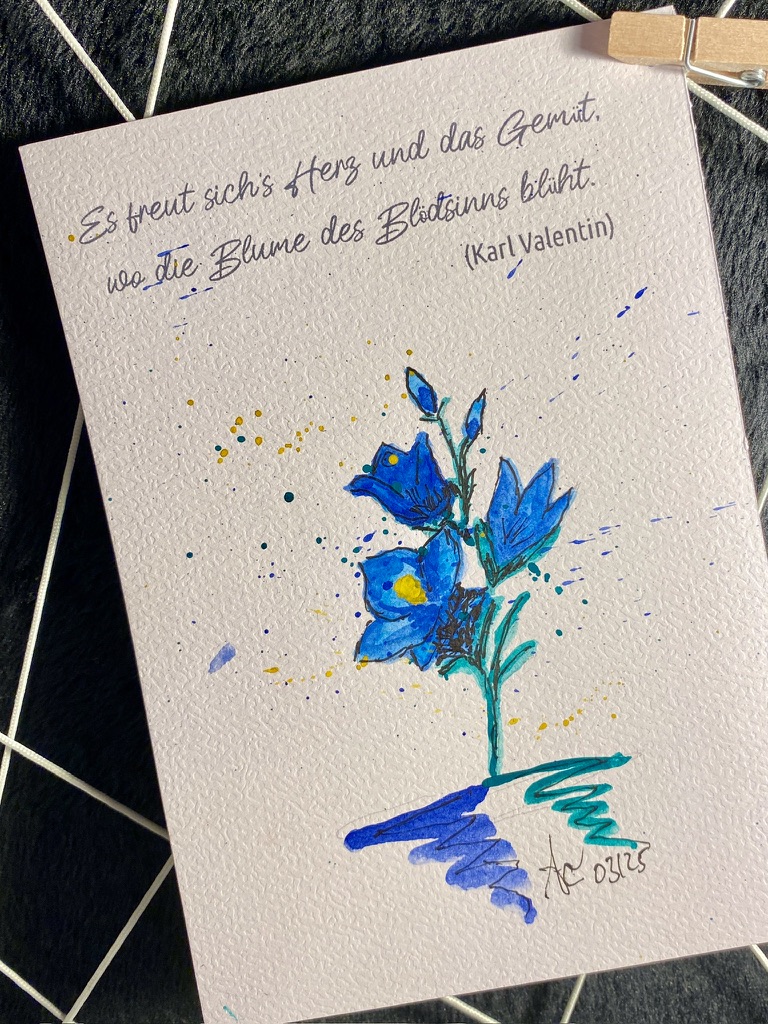 Es freut sich's Herz und das Gemüt,
wo die Blume des Blödsinns blüht.
(Karl Valentin)
AC 03/25